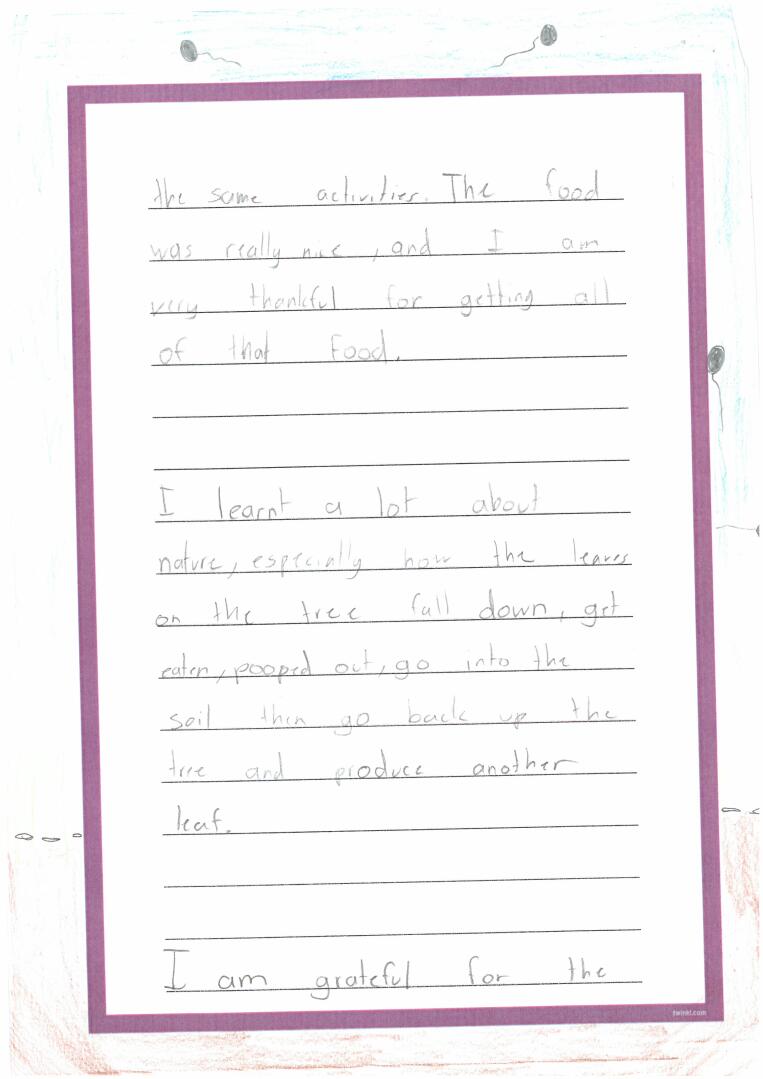 the same activities. The food
was really nice, and I am
very thankful for getting all
of that food.
I learnt a lot about
nature, especially how the leaves
on the tree fall down, get
eaten, pooped out, go into the
soil then go back up the
tree and produce another
leaf.
I am grateful for the
twinkl.com